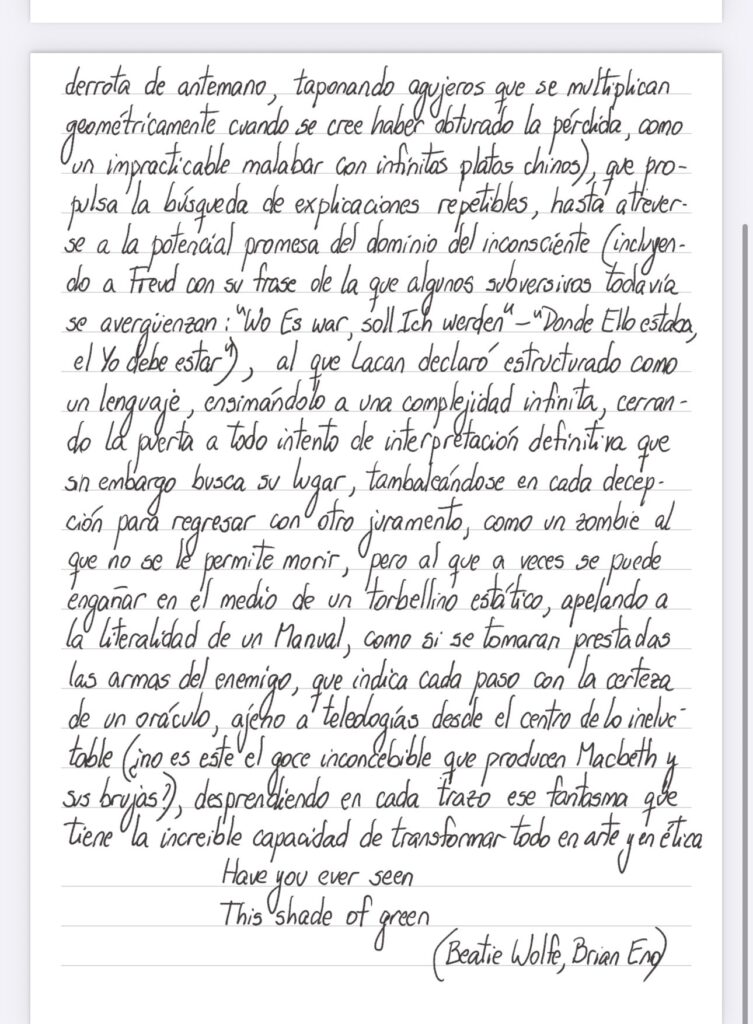 derrota de antemano, taponando agujeros que se multiplican
geométricamente cuando se cree haber obturado la pérdida, como
un impracticable malabar con infinitos platos chinos), que pro-
pulsa la búsqueda de explicaciones repetibles, hasta atrever-
se a la potencial promesa del dominio del inconsciente (incluyen-
do a Freud con su frase de la que algunos subversivos todavía
se avergüenzan: "Wo Es war, soll Ich werden" – "Donde Ello estaba,
el Yo debe estar"), al que Lacan declaró estructurado como
un lenguaje, ensimándolo a una complejidad infinita, cerran-
do la puerta a todo intento de interpretación definitiva que
sn embargo busca su lugar, tambaleándose en cada decep-
ción para regresar con otro juramento, como un zombie al
que no se le permite morir, pero al que a veces se puede
engañar en el medio de un torbellino estático, apelando a
la literalidad de un Manual, como si se tomaran prestadas
las armas del enemigo, que indica cada paso con la certeza
de un oráculo, ajeno a teleologías desde el centro de lo ineluc-
table (¿no es este el goce inconcebible que producen Macbeth y
sus brujas?), desprendiendo en cada trazo ese fantasma que
tiene la increible capacidad de transformar todo en arte y en ética
Have you ever seen
This shade of green
(Beatie Wolfe, Brian Eno)